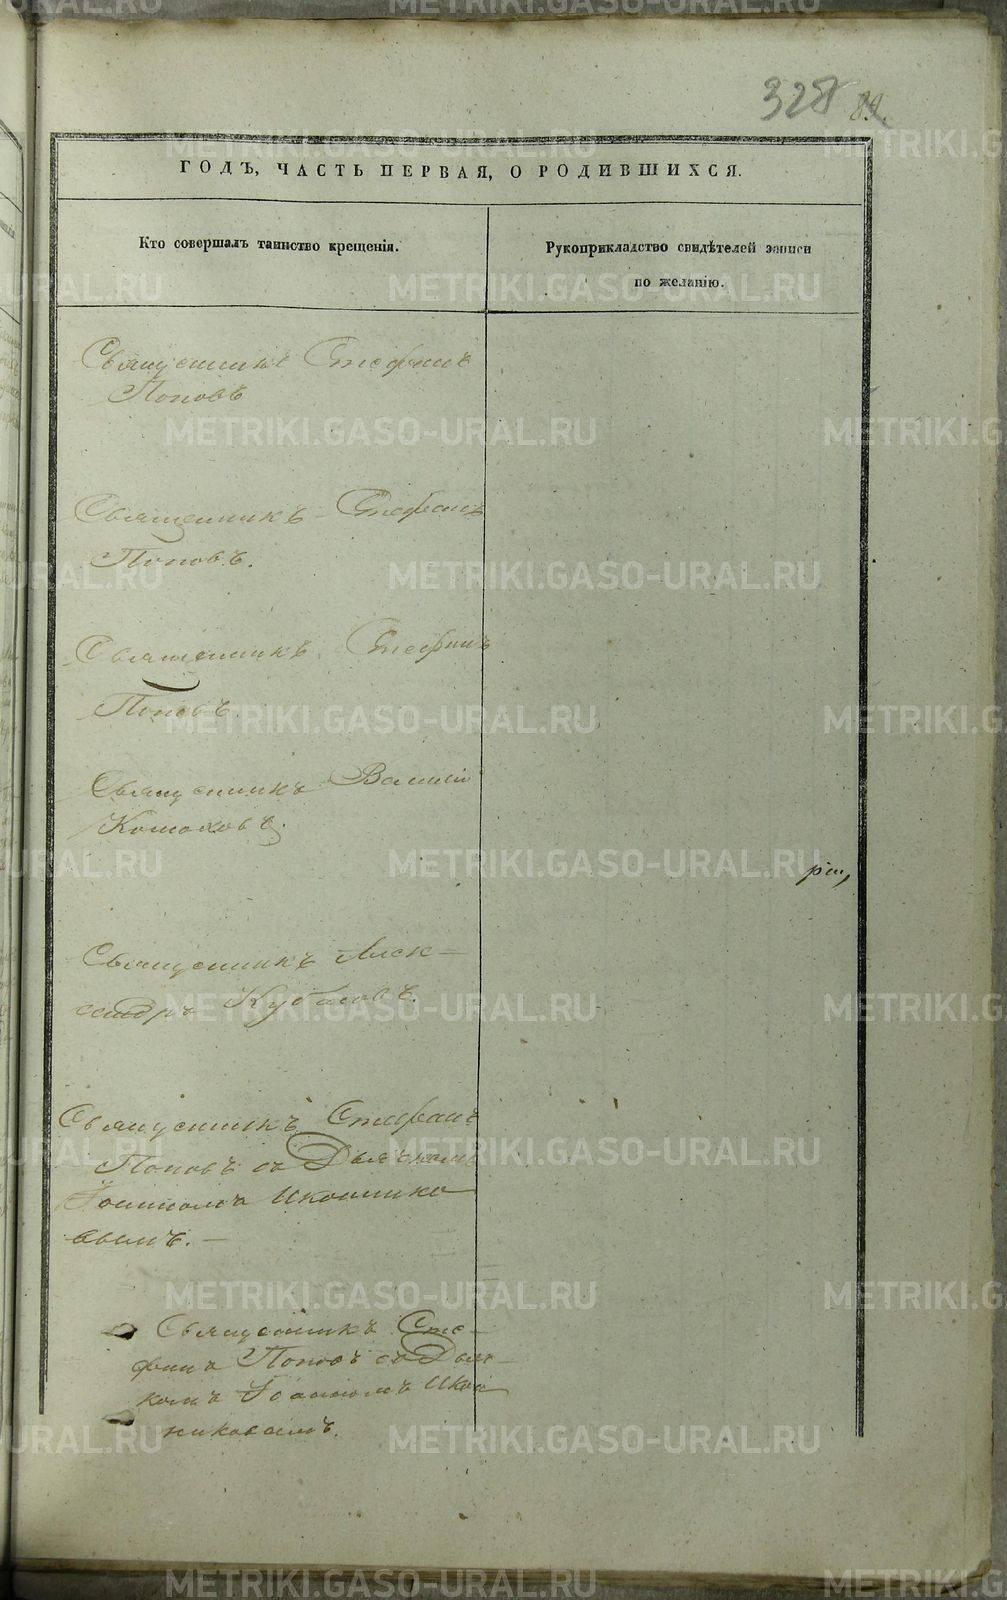 328 89.
ГОДЪ, ЧАСТЬ ПЕРВАЯ, О РОДИВШИХСЯ.
Кто совершалъ таинство крещенія.
Рукоприкладство свидѣтелей записи
по желанію.
Священникъ Стефанъ
Поповъ
Священникъ Стефанъ
Поповъ.
Священникъ Стефанъ
Поповъ.
Священникъ Василій
Священникъ Алек-
сандръ Кубасовъ.
Священникъ Стефанъ
Поповъ съ Дьячкомъ
Іоанномъ Иконнико
вымъ.
Священникъ Сте-
фанъ Поповъ съ Дьяч-
комъ Іоанномъ Икон
никовымъ.
METRIKI.GASO-URAL.RU